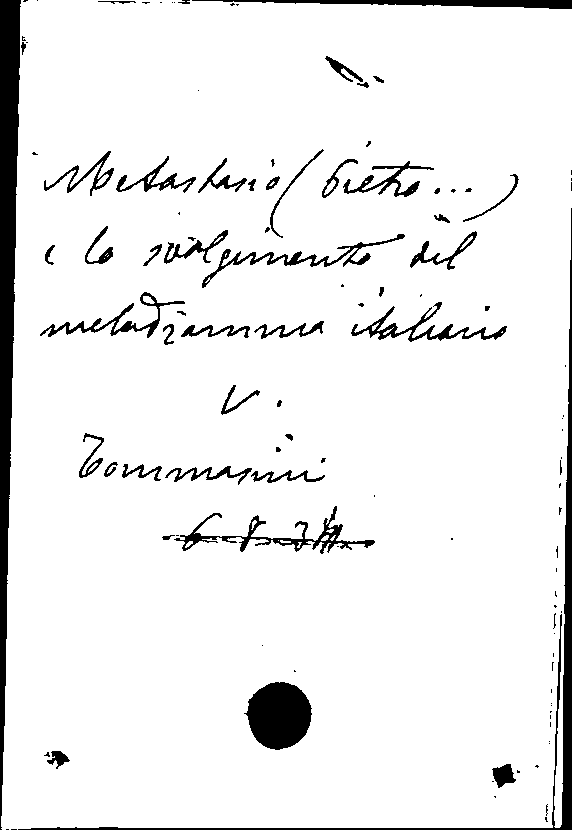 Metastasio (Pietro...)
e lo svolgimento del
melodramma italiano
V.
Tommasini
6 8 3